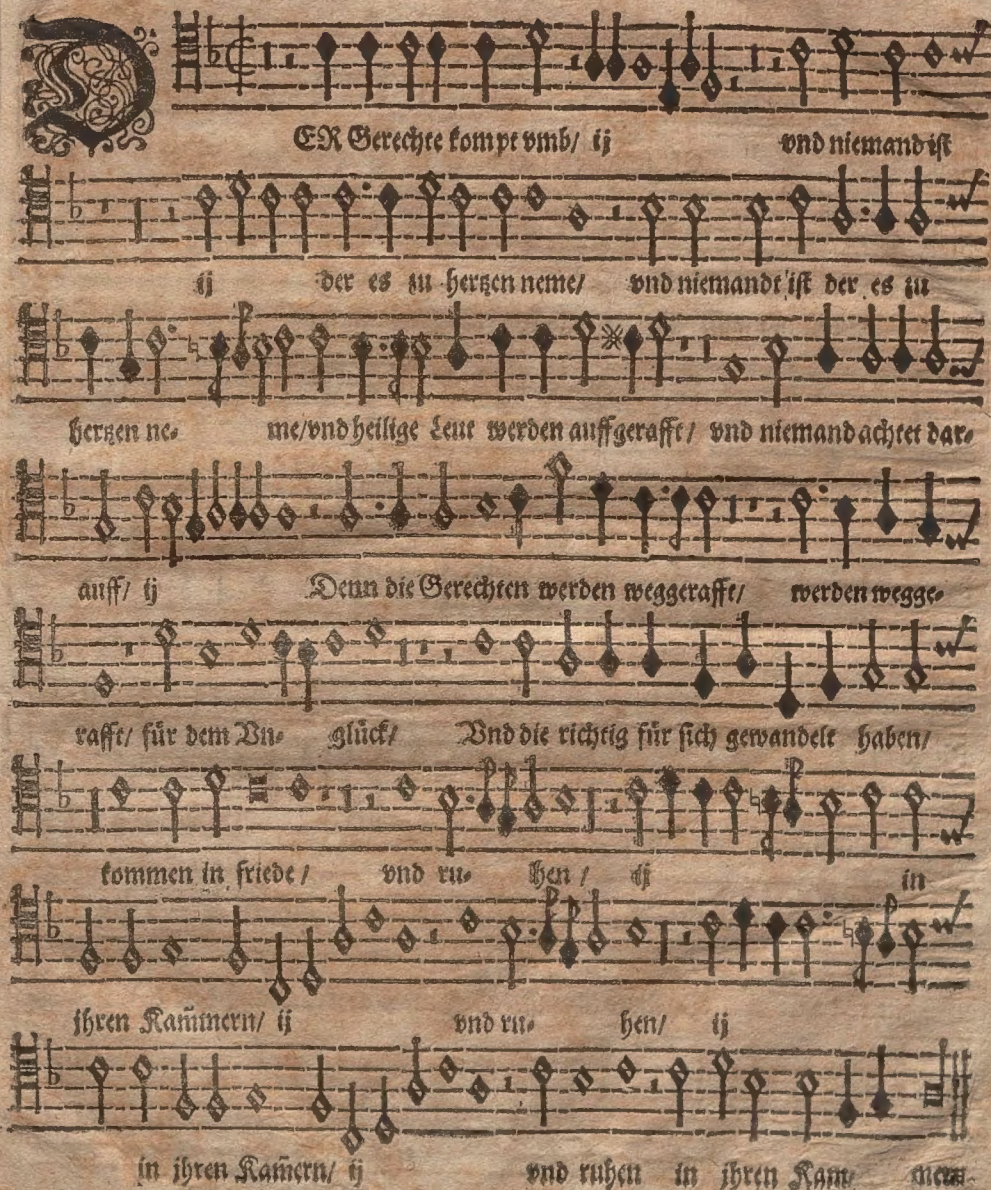 DER Gerechte kompt vmb/ ij vnd niemand ist
ij der es zu hertzen neme/ vnd niemandt ist der es zu
hertzen ne⸗ me/vnd heilige Leut werden auffgerafft/ vnd niemand achtet dar⸗
auff/ ij Denn die Gerechten werden weggerafft/ werden wegge⸗
rafft/ für dem Vn⸗ glück/ Vnd die richtig für sich gewandelt haben/
kommen in friede/ vnd ru⸗ hen/ ij in
jhren Kam̃mern/ ij vnd ru⸗ hen/ ij
in jhren Kam̃ern/ ij vnd ruhen in jhren Kam⸗ mern.